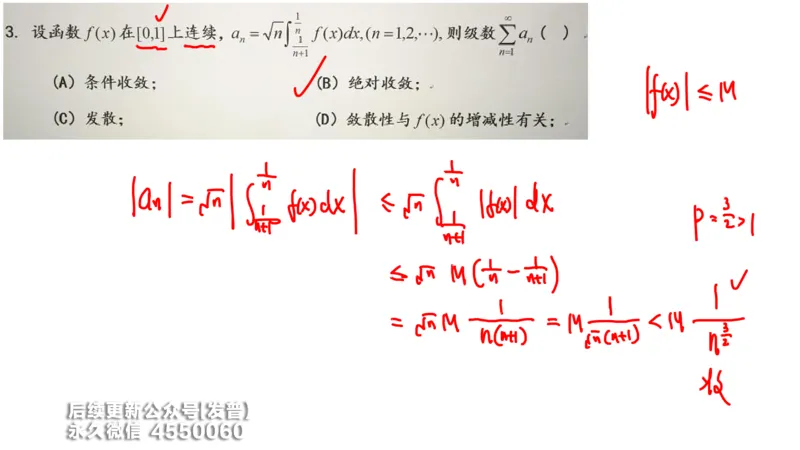 3. 设函数 f(x) 在 [0,1] 上连续, a_n = √n ∫_{1/(n+1)}^{1/n} f(x)dx, (n=1,2,⋯), 则级数 ∑_{n=1}^{∞} a_n ( )
(A) 条件收敛; (B) 绝对收敛;
(C) 发散; (D) 敛散性与 f(x) 的增减性有关;
|f(x)| ≤ M
|a_n| = √n |∫_{1/(n+1)}^{1/n} f(x)dx| ≤ √n ∫_{1/(n+1)}^{1/n} |f(x)| dx
p = 3/2 > 1
≤ √n M (1/n − 1/(n+1))
= √n M 1/(n(n+1)) = M 1/(√n(n+1)) < M 1/n^{3/2}
收敛
后续更新公众号(发普)
永久微信 4550060